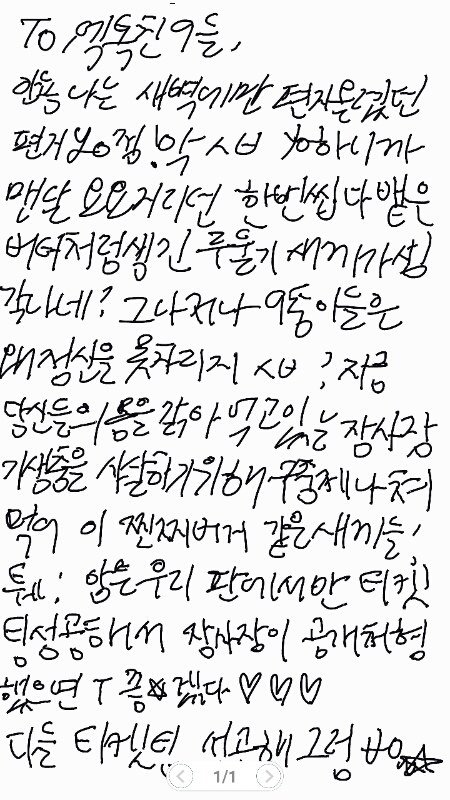 To 엑독친9들,
안농 나는 새벽에만 편지올렸던
편지 yo정! 막 ㅅㅂ yo하니까
맨날 오오거리던 한번씹다뱉은
버터처럼생긴 루울기 새끼가싫
각나네? 그나저나 9동이들은
왜정신을 못차리지 ㅅㅂ? 지금
당신들의 몸을 갉아 먹고있는 장사장
기생충을 사살하기위해 구충제나 쳐
먹어 이 찐찌버거 같은새끼들,
퉤; 암튼우리 판에서만 티킷
팅성공해서 장사장이 공개처형
했으면 T 좋겠다 ♡♡♡
다들 티켓팅 성공해 그럼 ㅂ0☆
1/1